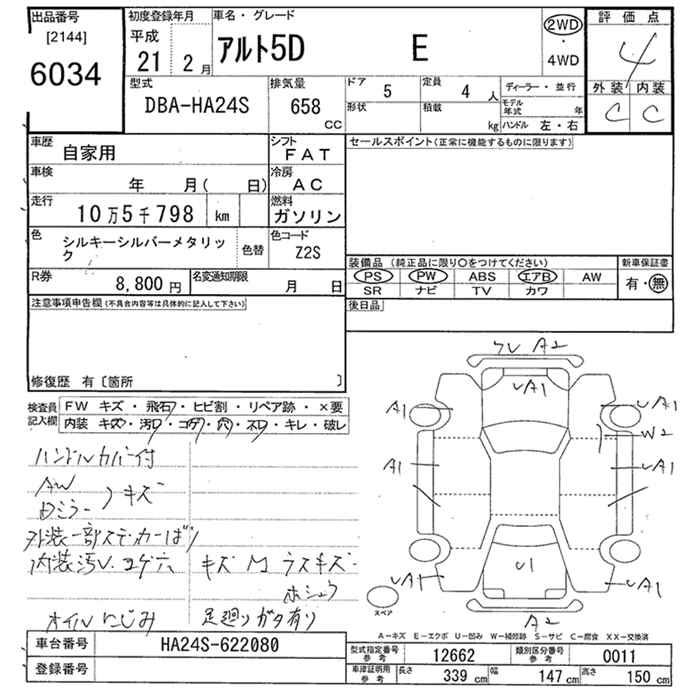 出品番号
[2144]
6034
初度登録年月
平成
21 2月
車名・グレード
アルト5D E
2WD
・
4WD
評価点
4
外装 内装
C C
型式
DBA-HA24S
排気量
658
CC
ドア
5
定員
4 人
形状
積載
kg
ディーラー・並行
モデル年式 年
ハンドル 左・右
車歴
自家用
シフト
FAT
車検
年 月( 日)
冷房
AC
走行
10万5千798 km
燃料
ガソリン
色
シルキーシルバーメタリック
色替
色コード
Z2S
R券
8,800円
名変通知期限
月 日
セールスポイント(正常に機能するものに限ります)
装備品(純正品に限り〇をつけてください)
PS PW ABS エアB AW
SR ナビ TV カワ
新車保証書
有・無
後日品
注意事項申告欄(不具合内容等は具体的に記入して下さい)
修復歴 有〔箇所 〕
検査員記入欄
FW キズ・飛石・ヒビ割・リペア跡・×要
内装 キズ・汚れ・コゲ・穴・ネジ・キレ・破レ
ハンドルカバー付
AW
ドミラー キズ
外装一部ステッカーばり
内装汚レ、コゲ穴
キズ M ラスキズ
ホシュウ
オイルにじみ
足廻りガタ有り
ワレ A2
UA1
A1
UA1
W2
A1
UA1
UA1
U1
UA1
A2
スペア
A-キズ E-エクボ U-凹み W-補修跡 S-サビ C-腐食 XX-交換済
車台番号
HA24S-622080
登録番号
型式指定番号 参考
12662
類別区分番号 参考
0011
車庫証明用 参考
長さ 339 cm
幅 147 cm
高さ 150 cm